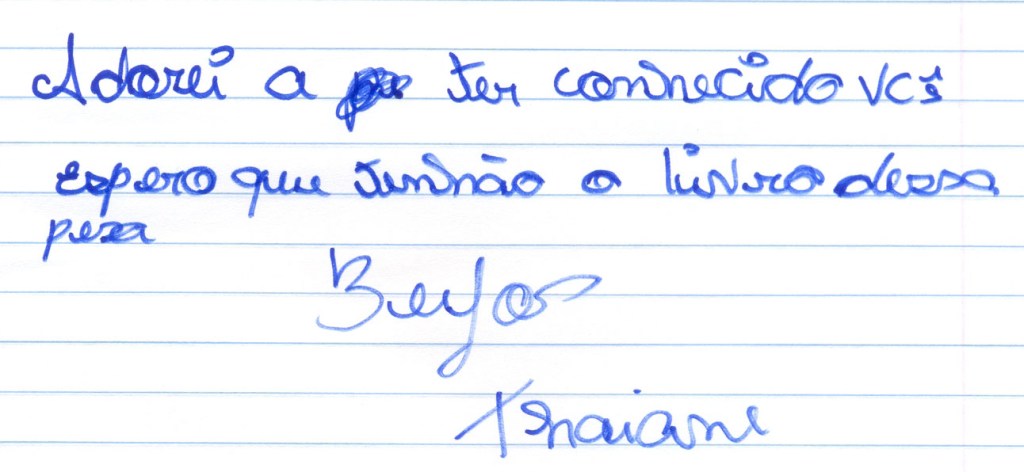 Adorei a ter conhecido vcs
Espero que tenhão o livro dessa
peza
Beijos
Thaiane